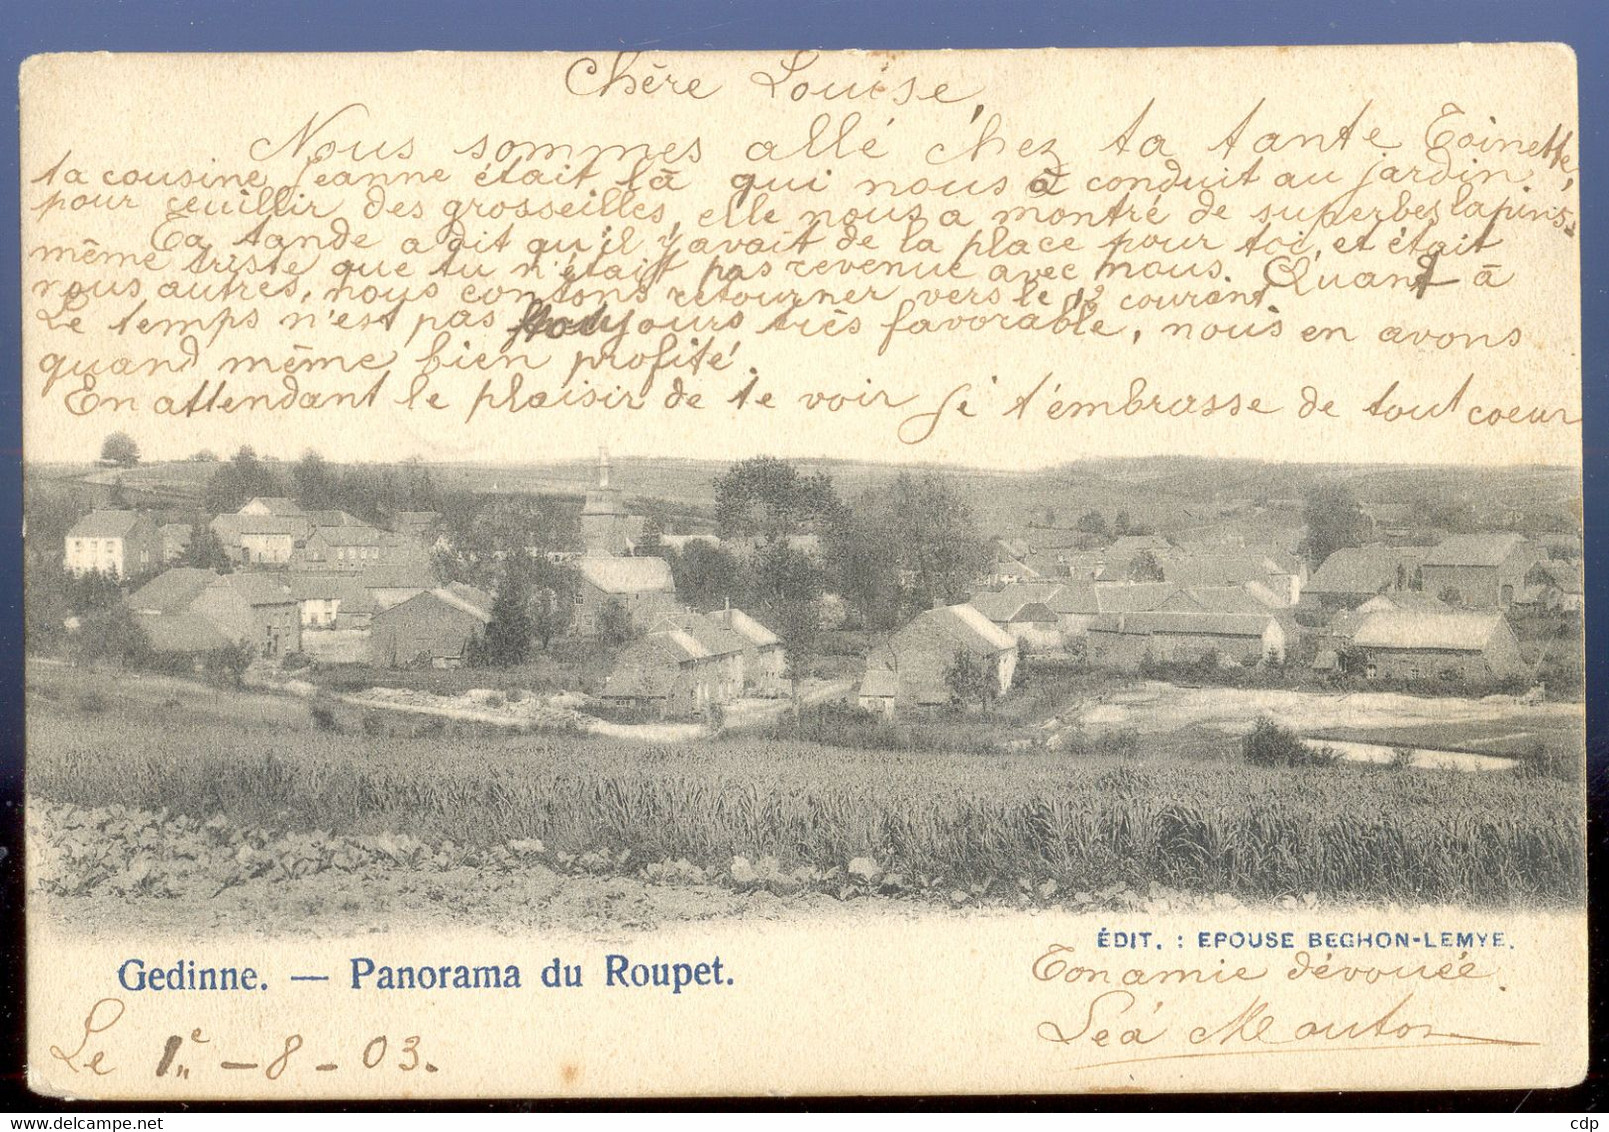 Chère Louise,
Nous sommes allé chez ta tante Toinette,
ta cousine Jeanne était là qui nous à conduit au jardin
pour ceuillir des grosseilles, elle nous a montré de superbes lapins.
Ta tande a dit qu'il y avait de la place pour toi, et était
même triste que tu n'était pas revenue avec nous. Quant à
nous autres, nous comtons retourner vers le 12 courant.
Le temps n'est pas toujours très favorable, nous en avons
quand même bien profité.
En attendant le plaisir de te voir je t'embrasse de tout coeur
ÉDIT. : EPOUSE BEGHON-LEMYE.
Gedinne. — Panorama du Roupet.
Ton amie dévouée.
Léa Mouton
Le 1e - 8 - 03.
delcampe.net
cdp